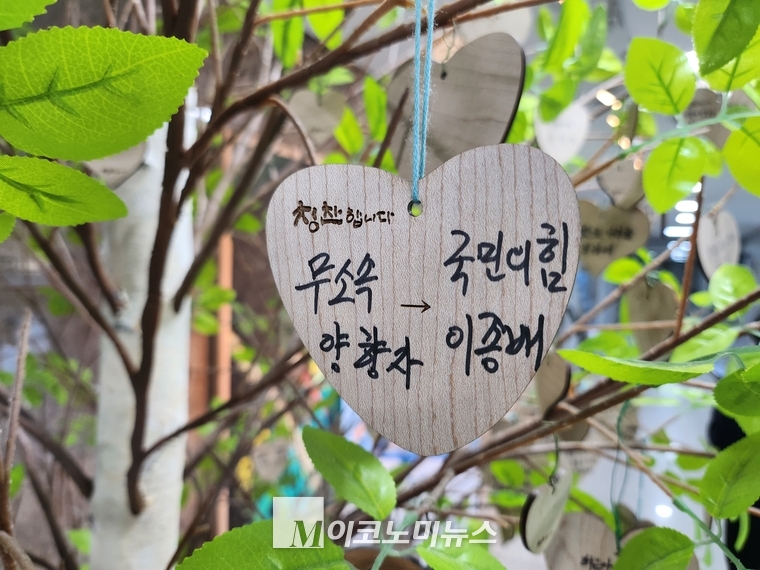 칭찬합니다
무소속 → 국민의힘
양향자 이종배
M이코노미뉴스